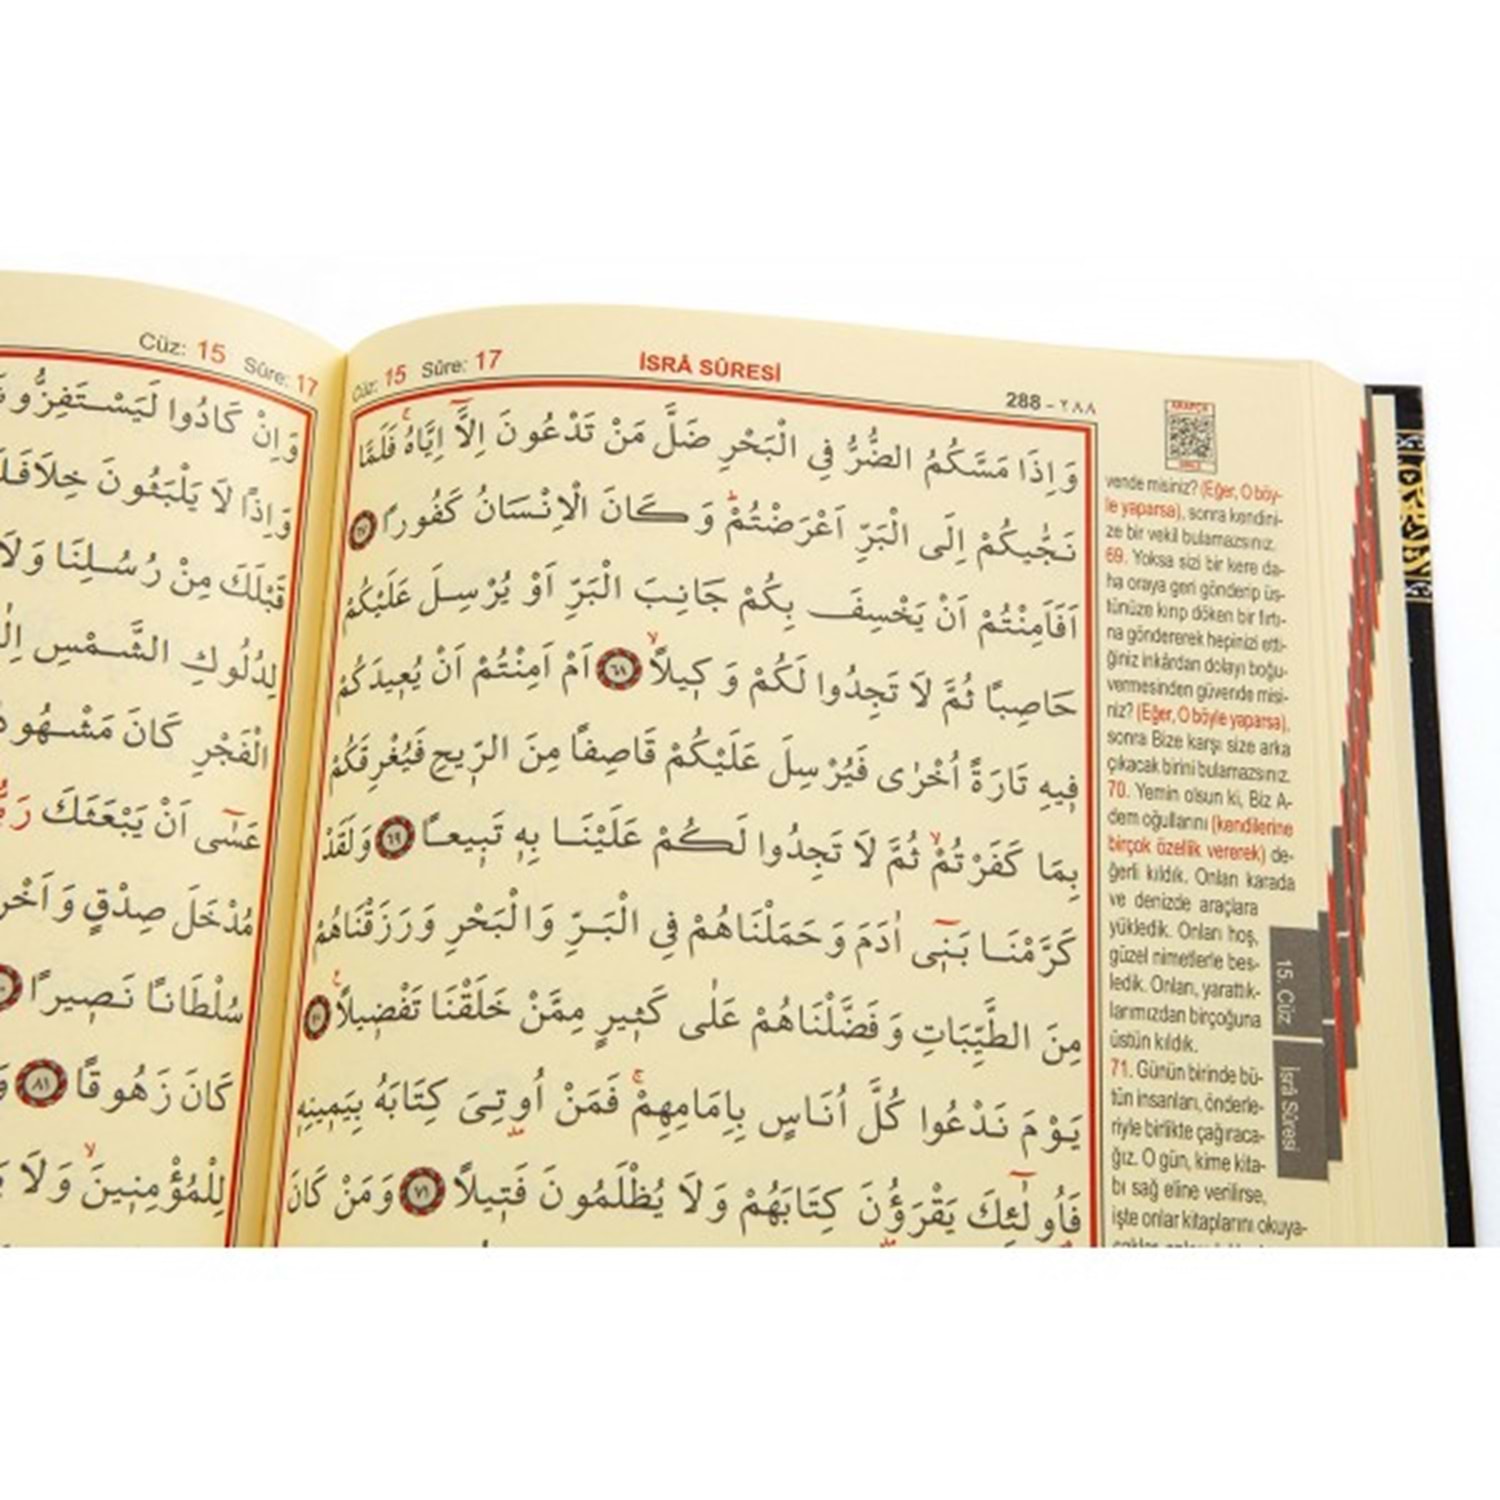 Cüz: 15 Sûre: 17 İSRÂ SÛRESİ 288 - ٢٨٨
وَاِذَا مَسَّكُمُ الضُّرُّ فِي الْبَحْرِ ضَلَّ مَنْ تَدْعُونَ اِلَّٓا اِيَّاهُۚ فَلَمَّا
نَجّٰيكُمْ اِلَى الْبَرِّ اَعْرَضْتُمْۜ وَكَانَ الْاِنْسَانُ كَفُورًا ﴿٦٧﴾
اَفَاَمِنْتُمْ اَنْ يَخْسِفَ بِكُمْ جَانِبَ الْبَرِّ اَوْ يُرْسِلَ عَلَيْكُمْ
حَاصِبًا ثُمَّ لَا تَجِدُوا لَكُمْ وَكِيلًاۙ ﴿٦٨﴾ اَمْ اَمِنْتُمْ اَنْ يُعِيدَكُمْ
فِيهِ تَارَةً اُخْرٰى فَيُرْسِلَ عَلَيْكُمْ قَاصِفًا مِنَ الرّ۪يحِ فَيُغْرِقَكُمْ
بِمَا كَفَرْتُمْۙ ثُمَّ لَا تَجِدُوا لَكُمْ عَلَيْنَا بِه۪ تَب۪يعًا ﴿٦٩﴾ وَلَقَدْ
كَرَّمْنَا بَن۪ٓي اٰدَمَ وَحَمَلْنَاهُمْ فِي الْبَرِّ وَالْبَحْرِ وَرَزَقْنَاهُمْ
مِنَ الطَّيِّبَاتِ وَفَضَّلْنَاهُمْ عَلٰى كَث۪يرٍ مِمَّنْ خَلَقْنَا تَفْض۪يلًاۚ ﴿٧٠﴾
يَوْمَ نَدْعُوا كُلَّ اُنَاسٍ بِاِمَامِهِمْۚ فَمَنْ اُو۫تِيَ كِتَابَهُ بِيَم۪ينِه۪
فَاُو۬لٰٓئِكَ يَقْرَؤُ۫نَ كِتَابَهُمْ وَلَا يُظْلَمُونَ فَت۪يلًا ﴿٧١﴾ وَمَنْ كَانَ
ARAPÇA
vende misiniz? (Eğer, O böy-
le yaparsa), sonra kendini-
ze bir vekil bulamazsınız.
69. Yoksa sizi bir kere da-
ha oraya geri gönderip üs-
tünüze kırıp döken bir fırtı-
na göndererek hepinizi etti-
ğiniz inkârdan dolayı boğu-
vermesinden güvende misi-
niz? (Eğer, O böyle yaparsa),
sonra Bize karşı size arka
çıkacak birini bulamazsınız.
70. Yemin olsun ki, Biz A-
dem oğullarını (kendilerine
birçok özellik vererek) de-
ğerli kıldık. Onları karada
ve denizde araçlara
yükledik. Onları hoş,
güzel nimetlerle bes-
ledik. Onları, yarattık-
larımızdan birçoğuna
üstün kıldık.
71. Günün birinde bü-
tün insanları, önderle-
riyle birlikte çağıraca-
ğız. O gün, kime kita-
bı sağ eline verilirse,
işte onlar kitaplarını okuya-
15. Cüz
İsrâ Sûresi
Cüz: 15 Sûre: 17
وَاِنْ كَادُوا لَيَسْتَفِزُّو
وَاِذًا لَا يَلْبَثُونَ خِلَافَ
قَبْلَكَ مِنْ رُسُلِنَا وَلَا
لِدُلُوكِ الشَّمْسِ
الْفَجْرِ كَانَ مَشْهُو
عَسٰٓى اَنْ يَبْعَثَكَ
مُدْخَلَ صِدْقٍ وَ
سُلْطَانًا نَص۪يرًا
كَانَ زَهُوقًا ﴿٨١﴾
لِلْمُؤْمِن۪ينَۙ وَلَا